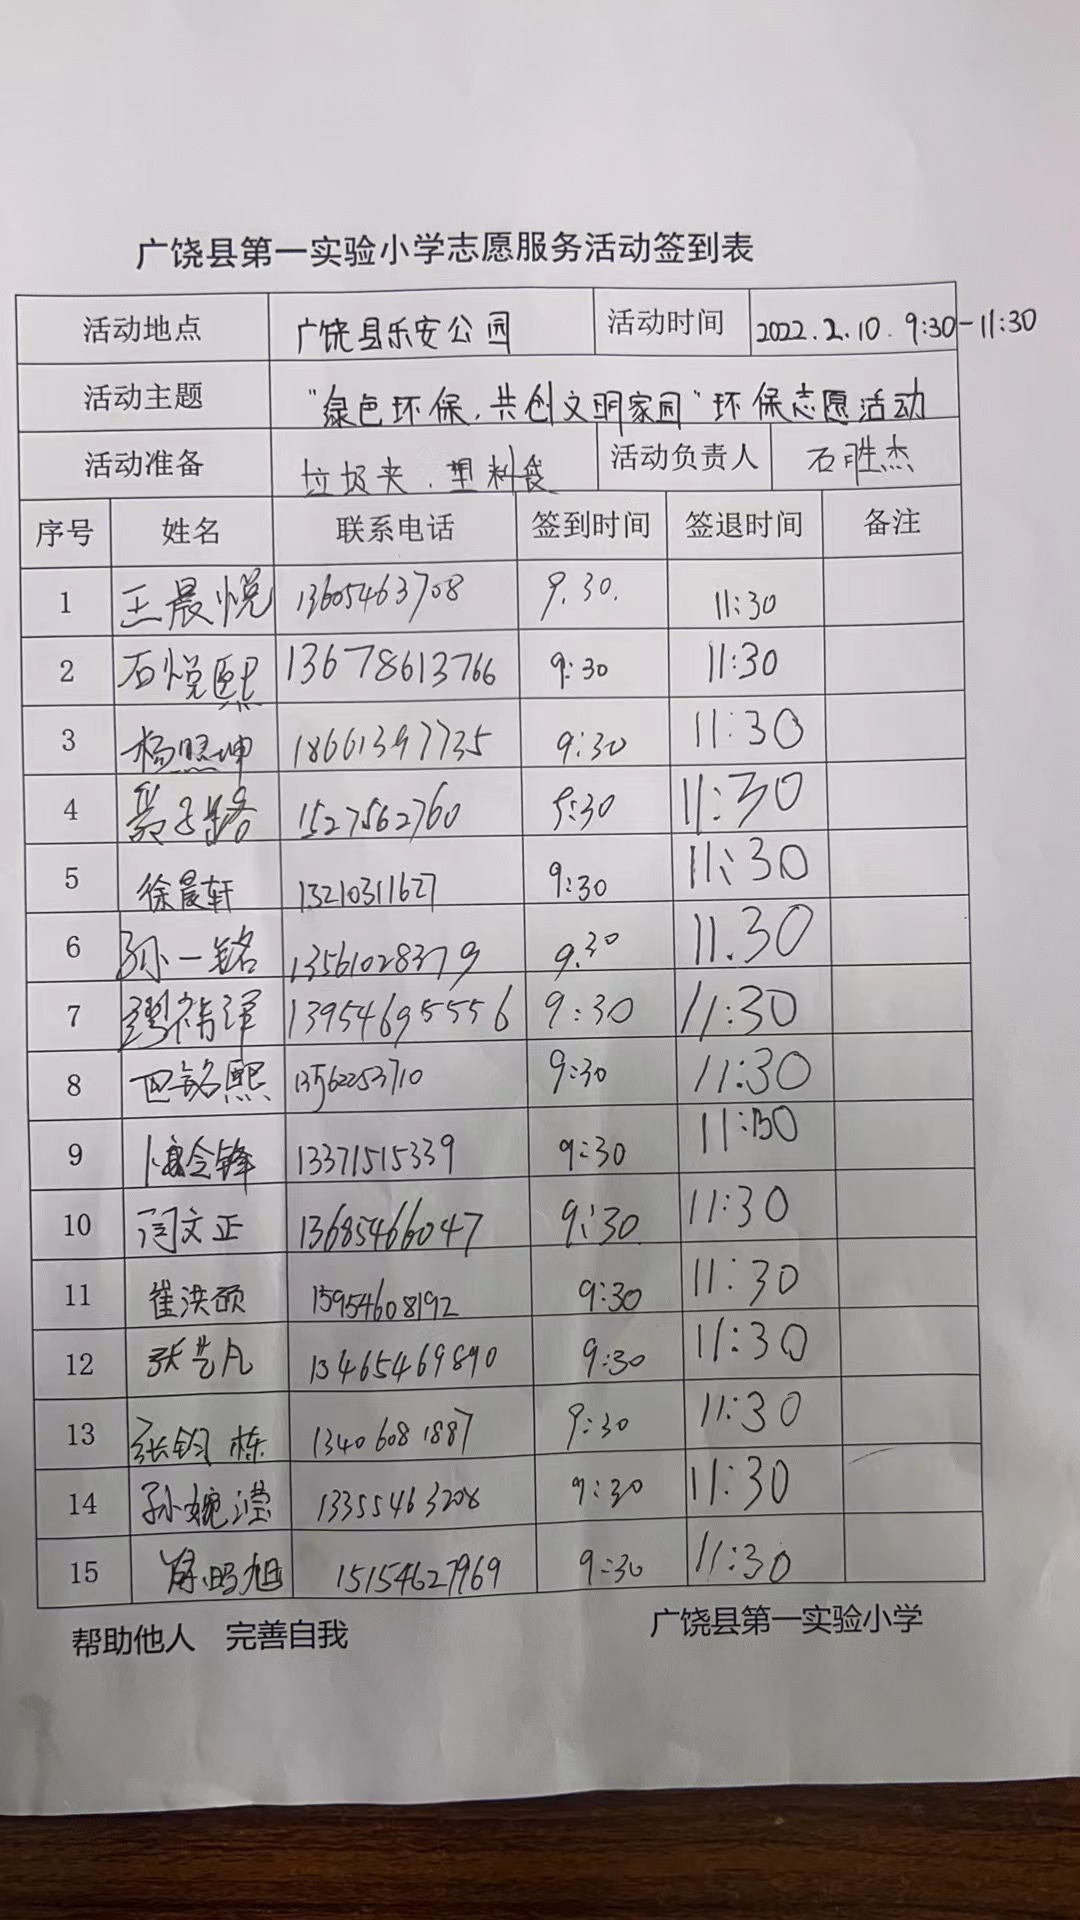 广饶县第一实验小学志愿服务活动签到表
活动地点 广饶县乐安公园 活动时间 2022.2.10. 9:30-11:30
活动主题 "绿色环保,共创文明家园"环保志愿活动
活动准备 垃圾夹.塑料袋 活动负责人 石胜杰
序号 姓名 联系电话 签到时间 签退时间 备注
1 王晨悦 13605463708 9.30. 11:30
2 石悦熙 13678613766 9:30 11:30
3 杨照坤 18661397735 9:30 11:30
4 1527562760 9:30 11:30
5 徐晨轩 13210311627 9:30 11:30
6 孙一铭 13561028379 9.30 11.30
7 13954695556 9:30 11:30
8 13562253710 9:30 11:30
9 13371515339 9:30 11:30
10 闫文正 13685466047 9:30 11:30
11 崔洪硕 15954608192 9:30 11:30
12 张艺凡 13465469890 9:30 11:30
13 张钧栋 13406081887 9:30 11:30
14 孙婉滢 13355463208 9:30 11:30
15 15154627969 9:30 11:30
帮助他人 完善自我 广饶县第一实验小学